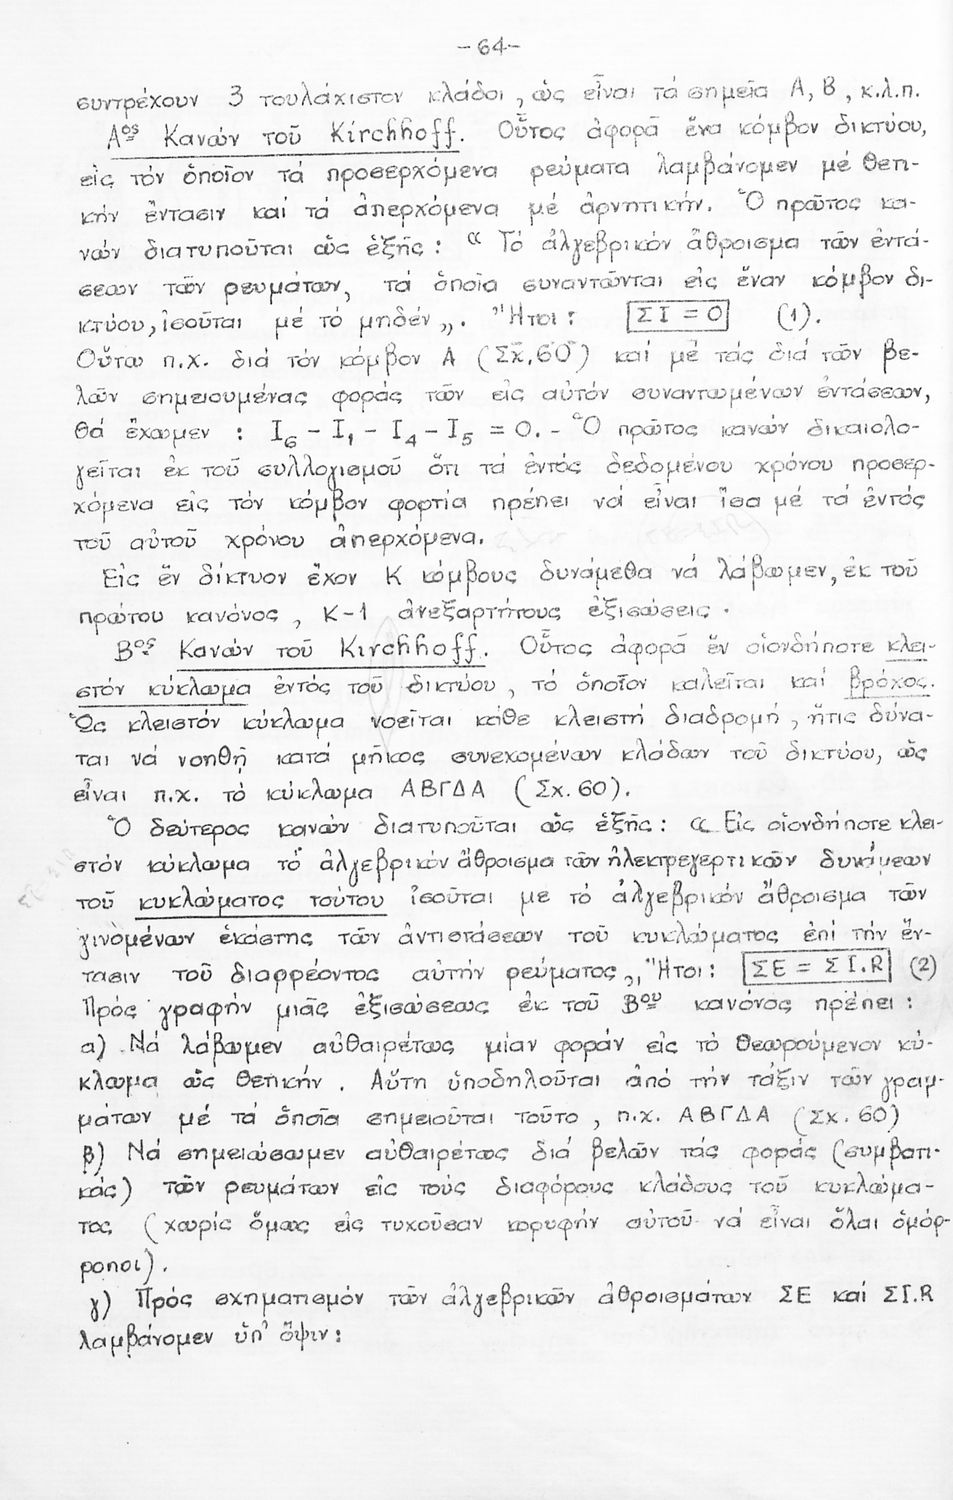 -64-
συντρέχουν 3 τουλάχιστον κλάδοι, ὡς εἶναι τά σημεῖα Α, Β, κ.λ.π.
Αος Κανών τοῦ Kirchhoff. Οὗτος ἀφορᾶ ἕνα κόμβον δικτύου,
εἰς τόν ὁποῖον τά προσερχόμενα ρεύματα λαμβάνομεν μέ θετι-
κήν ἔντασιν καί τά ἀπερχόμενα μέ ἀρνητικήν. Ὁ πρῶτος κα-
νών διατυποῦται ὡς ἑξῆς: « Τό ἀλγεβρικόν ἄθροισμα τῶν ἐντά-
σεων τῶν ρευμάτων, τά ὁποῖα συναντῶνται εἰς ἕναν κόμβον δι-
κτύου, ἰσοῦται μέ τό μηδέν „. Ἤτοι: ΣΙ = 0 (1).
Οὕτω π.χ. διά τόν κόμβον Α (Σχ. 60) καί μέ τάς διά τῶν βε-
λῶν σημειουμένας φοράς τῶν εἰς αὐτόν συναντωμένων ἐντάσεων,
θά ἔχωμεν : I₆ - I₁ - I₄ - I₅ = 0. - Ὁ πρῶτος κανών δικαιολο-
γεῖται ἐκ τοῦ συλλογισμοῦ ὅτι τά ἐντός δεδομένου χρόνου προσερ-
χόμενα εἰς τόν κόμβον φορτία πρέπει νά εἶναι ἴσα μέ τά ἐντός
τοῦ αὐτοῦ χρόνου ἀπερχόμενα.
Εἰς ἕν δίκτυον ἔχον Κ κόμβους δυνάμεθα νά λάβωμεν, ἐκ τοῦ
πρώτου κανόνος, Κ-1 ἀνεξαρτήτους ἐξισώσεις.
Βος Κανών τοῦ Kirchhoff. Οὗτος ἀφορᾶ ἕν οἱονδήποτε κλει-
στόν κύκλωμα ἐντός τοῦ δικτύου, τό ὁποῖον καλεῖται καί βρόχος.
Ὡς κλειστόν κύκλωμα νοεῖται κάθε κλειστή διαδρομή, ἥτις δύνα-
ται νά νοηθῇ κατά μῆκος συνεχομένων κλάδων τοῦ δικτύου, ὡς
εἶναι π.χ. τό κύκλωμα ΑΒΓΔΑ (Σχ. 60).
Ὁ δεύτερος κανών διατυποῦται ὡς ἑξῆς: « Εἰς οἱονδήποτε κλει-
στόν κύκλωμα τό ἀλγεβρικόν ἄθροισμα τῶν ἠλεκτρεγερτικῶν δυνάμεων
τοῦ κυκλώματος τούτου ἰσοῦται με τό ἀλγεβρικόν ἄθροισμα τῶν
γινομένων ἑκάστης τῶν ἀντιστάσεων τοῦ κυκλώματος ἐπί τήν ἔν-
τασιν τοῦ διαρρέοντος αὐτήν ρεύματος„, Ἤτοι: ΣΕ = Σ Ι.R (2)
Πρός γραφήν μιᾶς ἐξισώσεως ἐκ τοῦ Βου κανόνος πρέπει :
α) Νά λάβωμεν αὐθαιρέτως μίαν φοράν εἰς τό θεωρούμενον κύ-
κλωμα ὡς θετικήν. Αὕτη ὑποδηλοῦται ἀπό τήν τάξιν τῶν γραμ-
μάτων μέ τά ὁποῖα σημειοῦται τοῦτο, π.χ. ΑΒΓΔΑ (Σχ. 60)
β) Νά σημειώσωμεν αὐθαιρέτως διά βελῶν τάς φοράς (συμβατι-
κάς) τῶν ρευμάτων εἰς τούς διαφόρους κλάδους τοῦ κυκλώμα-
τος (χωρίς ὅμως εἰς τυχοῦσαν κορυφήν αὐτοῦ νά εἶναι ὅλαι ὁμόρ-
ροποι).
γ) Πρός σχηματισμόν τῶν ἀλγεβρικῶν ἀθροισμάτων ΣΕ καί ΣΙ.R
λαμβάνομεν ὑπ' ὄψιν: